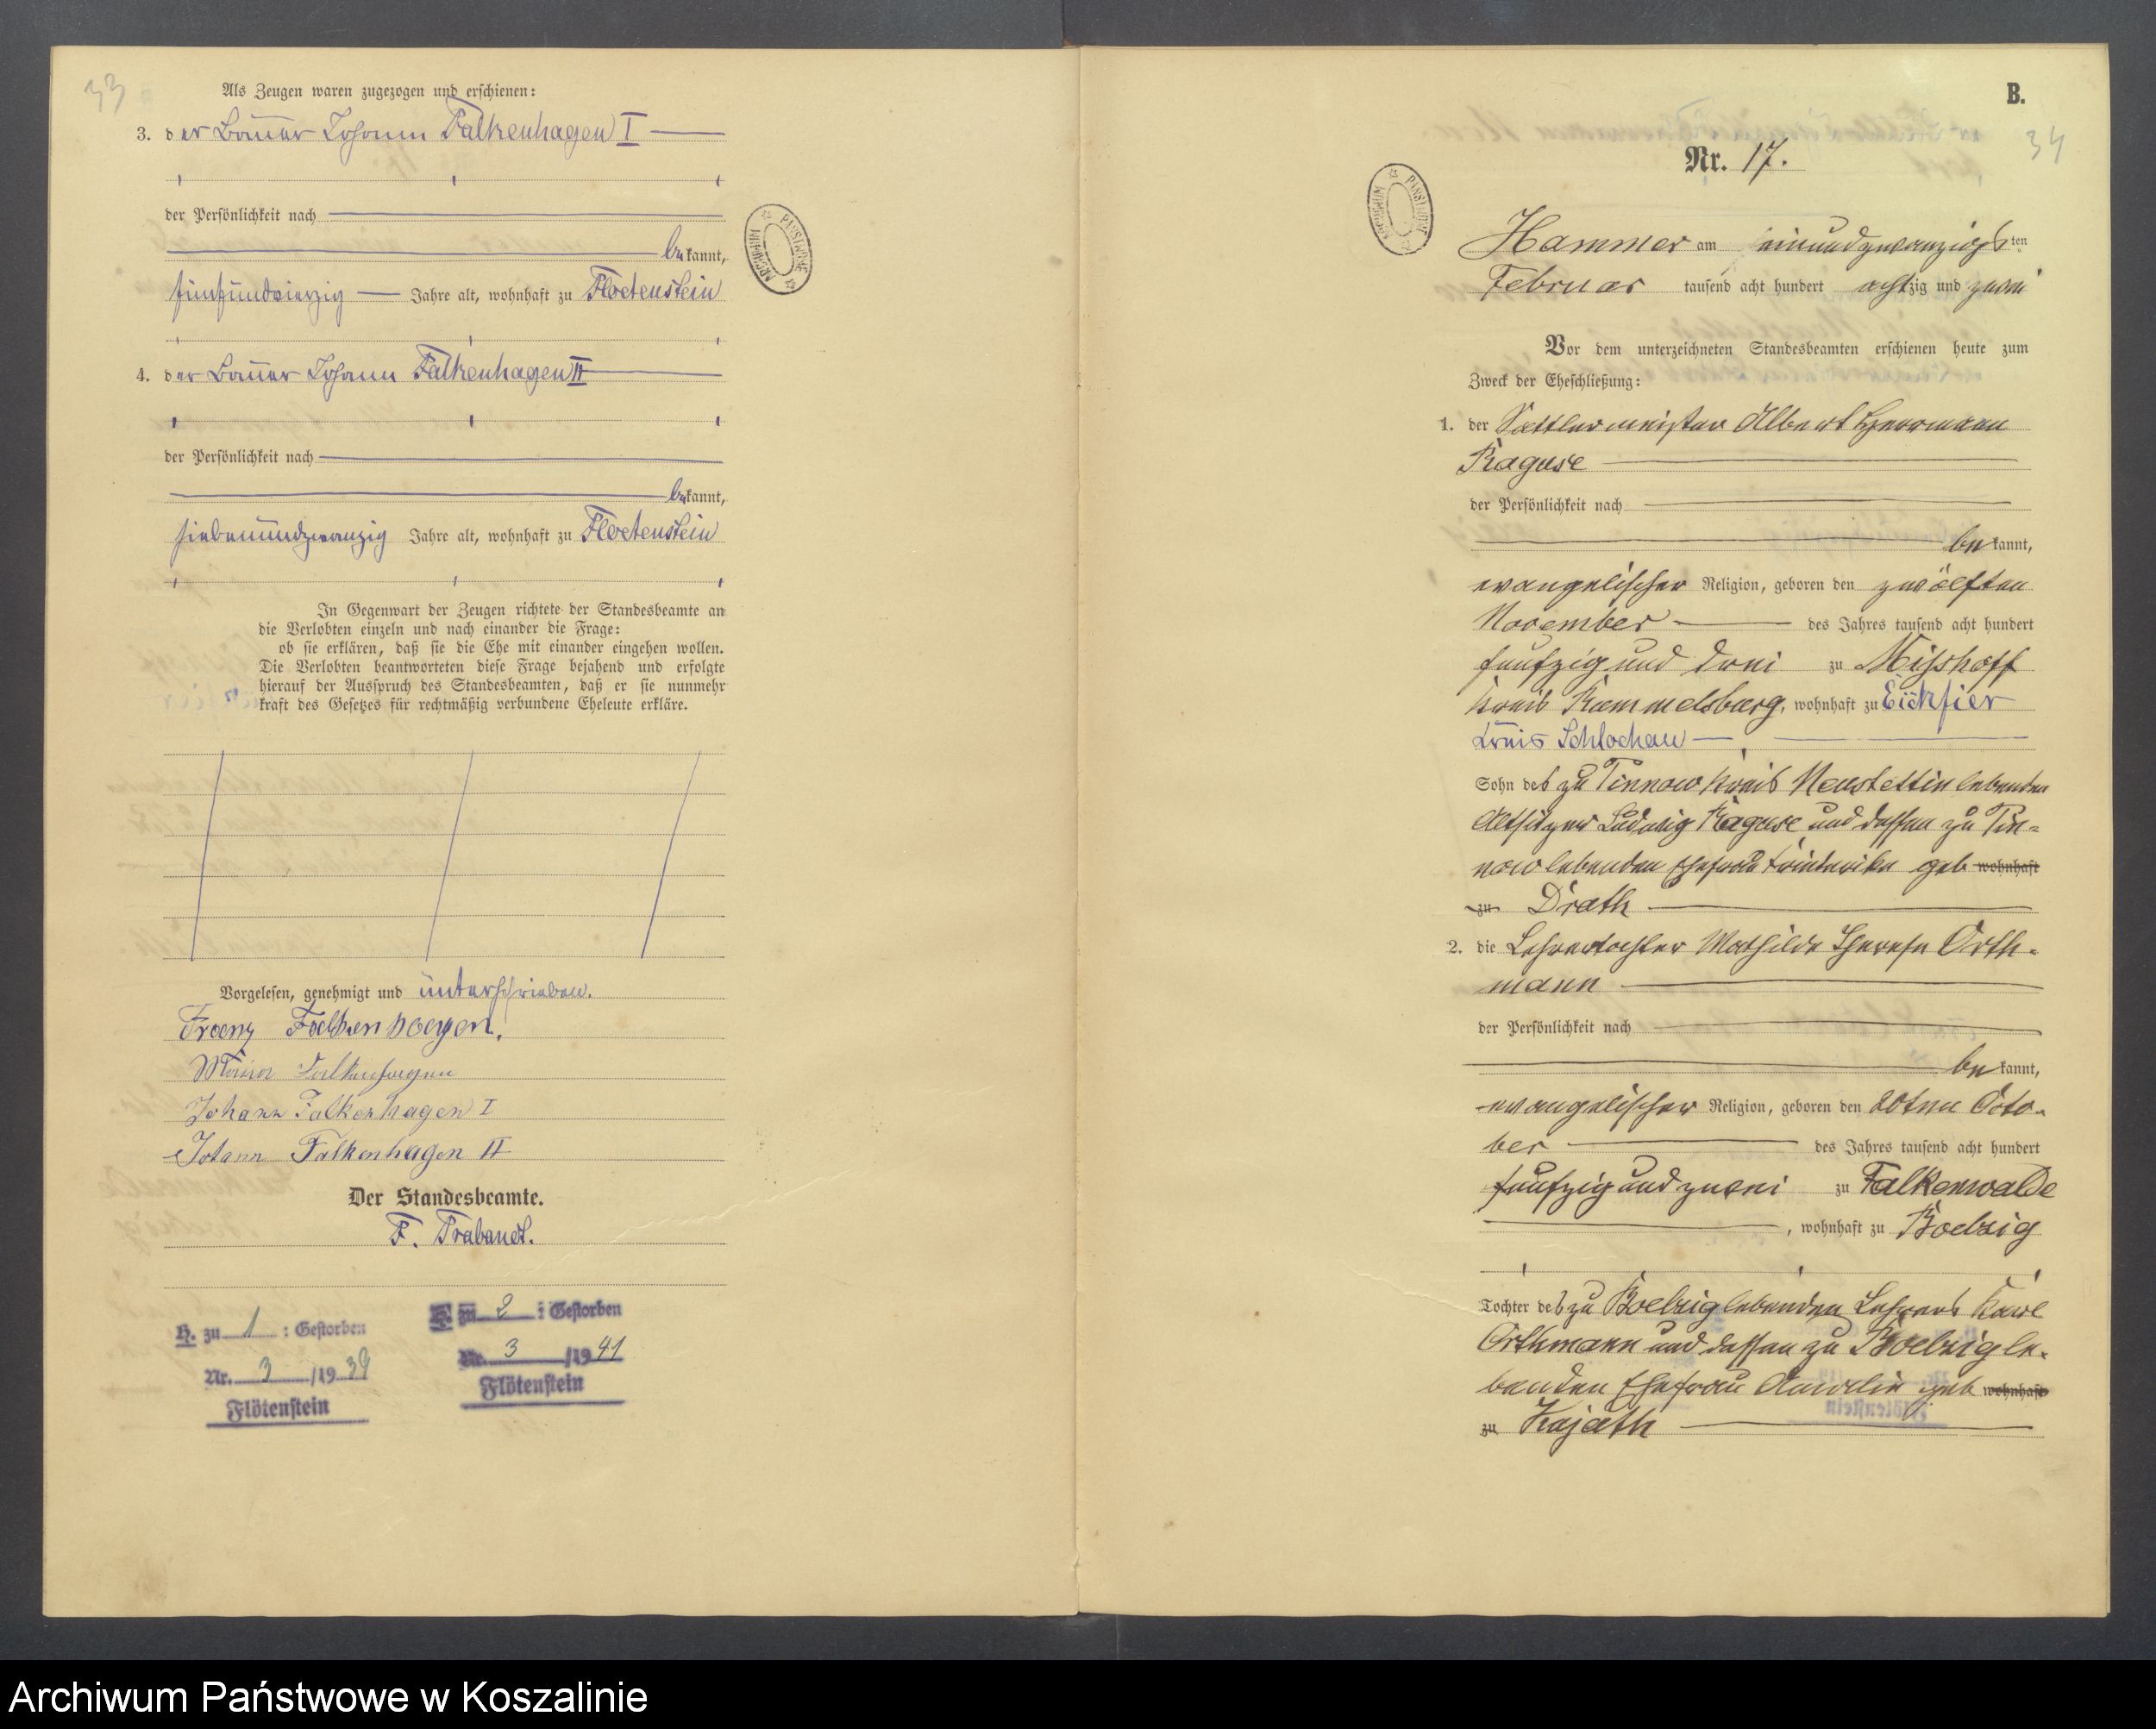 33
Als Zeugen waren zugezogen und erschienen:
3. der Bauer Johann Falkenhagen I
der Persönlichkeit nach
bekannt,
fünfundvierzig Jahre alt, wohnhaft zu Floetenstein
4. der Bauer Johann Falkenhagen II
der Persönlichkeit nach
bekannt,
siebenundzwanzig Jahre alt, wohnhaft zu Floetenstein
In Gegenwart der Zeugen richtete der Standesbeamte an
die Verlobten einzeln und nach einander die Frage:
ob sie erklären, daß sie die Ehe mit einander eingehen wollen.
Die Verlobten beantworteten diese Frage bejahend und erfolgte
hierauf der Ausspruch des Standesbeamten, daß er sie nunmehr
kraft des Gesetzes für rechtmäßig verbundene Eheleute erkläre.
Vorgelesen, genehmigt und unterschrieben.
Franz Falkenhagen.
Falkenhagen
Johann Falkenhagen I
Johann Falkenhagen II
Der Standesbeamte.
F. Trabandt.
H. zu 1 : Gestorben
Nr. 3 /19 39
Flötenstein
H. zu 2 : Gestorben
Nr. 3 /19 41
Flötenstein
ARCHIWUM PAŃSTWOWE
B.
34
Nr. 17.
ARCHIWUM PAŃSTWOWE
Hammer am einundzwanzigsten
Februar tausend acht hundert achtzig und zwei
Vor dem unterzeichneten Standesbeamten erschienen heute zum
Zweck der Eheschließung:
1. der Sattlermeister Albert Herrmann
Raguse
der Persönlichkeit nach
bekannt,
evangelischer Religion, geboren den zwölften
November des Jahres tausend acht hundert
fünfzig und drei zu Misshoff
Kreis Rummelsburg, wohnhaft zu Eickfier
Kreis Schlochau
Sohn des zu Tinnow Kreis Neustettin lebenden
Altsitzer Ludwig Raguse und dessen zu Tin-
now lebenden Ehefrau Friederike geb wohnhaft
zu Drath
2. die Lehrertochter Mathilde Therese Orth-
mann
der Persönlichkeit nach
bekannt,
evangelischer Religion, geboren den 20ten Octo-
ber des Jahres tausend acht hundert
fünfzig und zwei zu Falkenwalde
, wohnhaft zu Roelzig
Tochter des zu Roelzig lebenden Lehrers Karl
Orthmann und dessen zu Roelzig le-
benden Ehefrau geb wohnhaft
zu Kajath
Archiwum Państwowe w Koszalinie